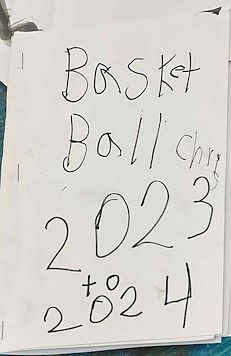 Basket
Ball Chris
2023
to
2024